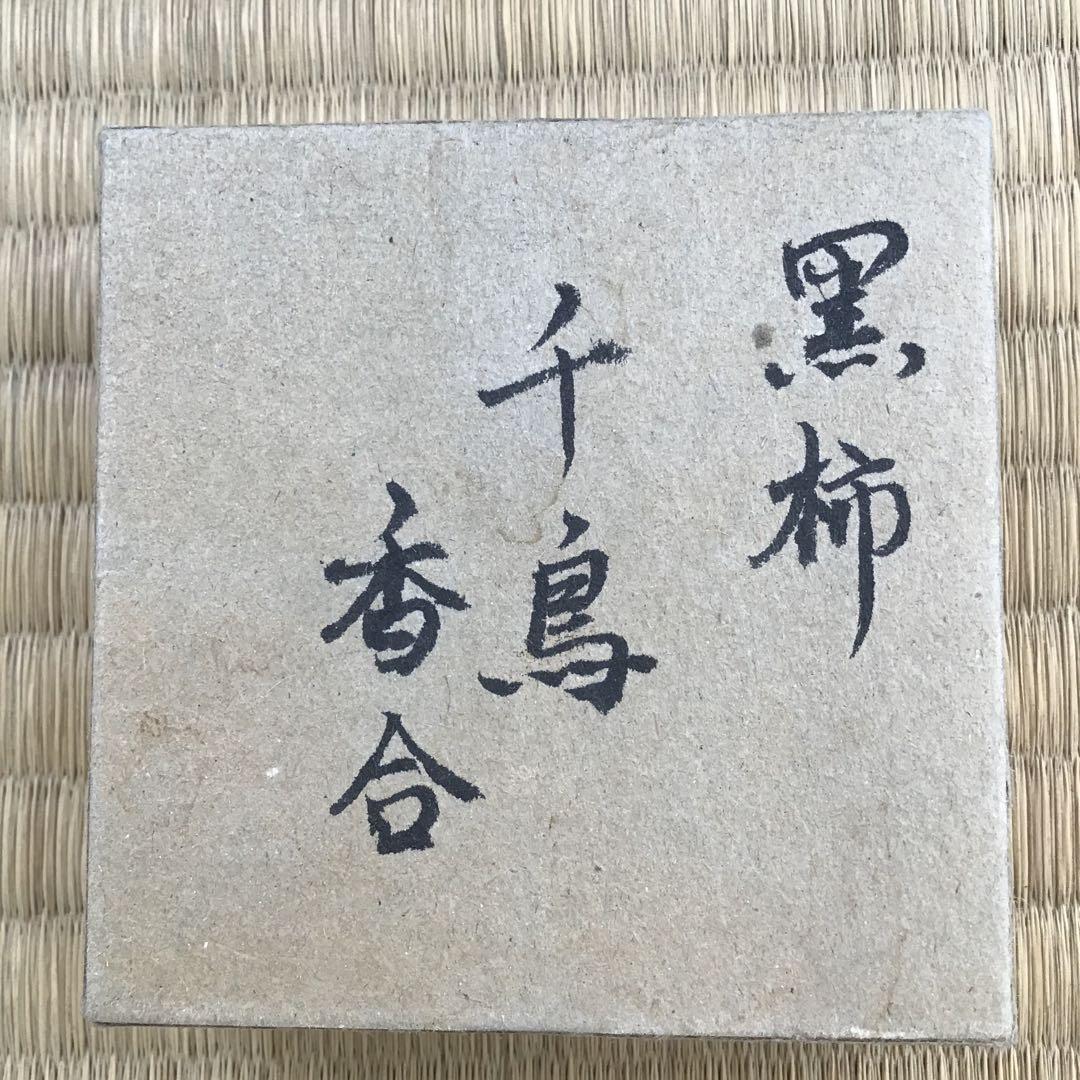 黒柿
千鳥
香合